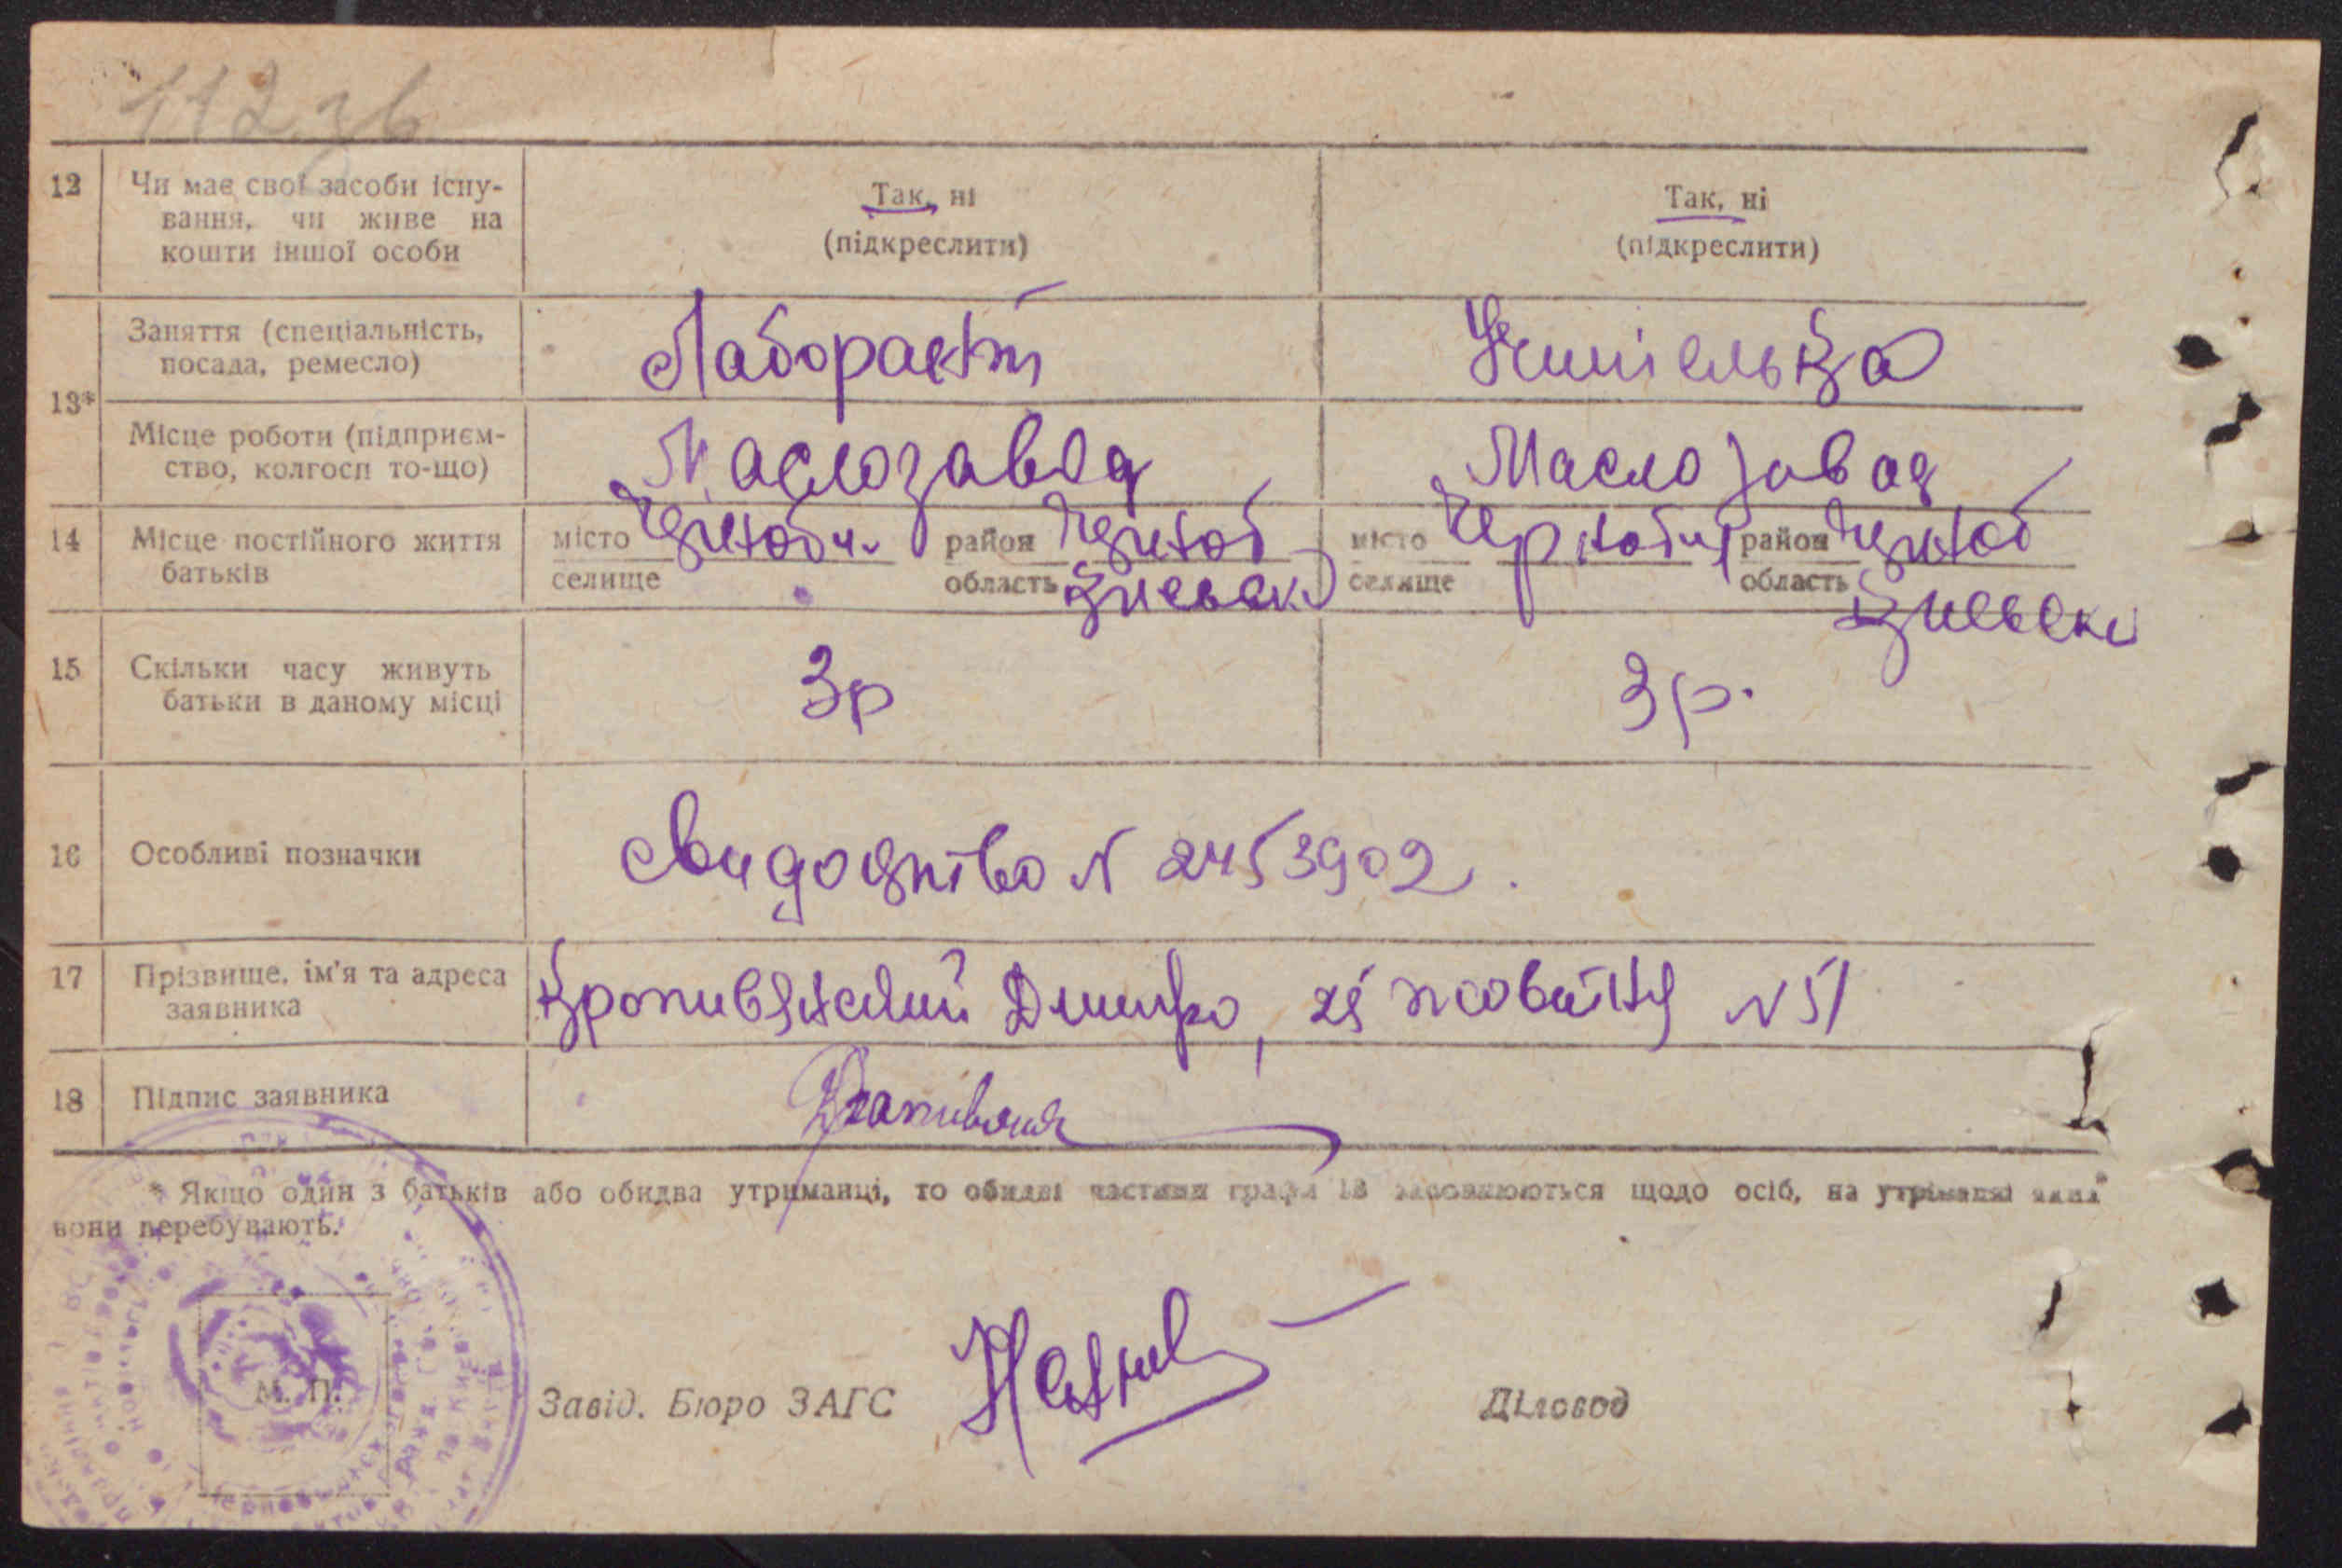 112 зв
12 Чи має свої засоби існу- Так, ні Так, ні
вання, чи живе на (підкреслити) (підкреслити)
кошти іншої особи
Заняття (спеціальність, Лаборант Учителька
посада, ремесло)
13*
Місце роботи (підприєм- Маслозавод Маслозавод
ство, колгосп то-що)
14 Місце постійного життя місто Чорноб. район Чорноб місто Чернобиль район Чорноб
батьків селище область Киевск. селище область Киевски
15 Скільки часу живуть 3р 3р.
батьки в даному місці
16 Особливі позначки Свидоцтво N 2453902.
17 Прізвище, ім'я та адреса Кропивянский Дмитро, 25 жовтня N 51
заявника
18 Підпис заявника
* Якщо один з батьків або обидва утриманці, то обидві частини графи 13 заповнюються щодо осіб, на утриманні яких
вони перебувають.
М. П.
Завід. Бюро ЗАГС Діловод